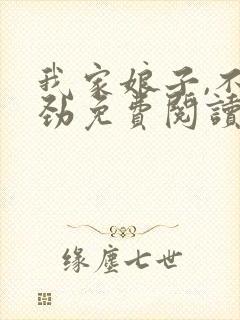 我家娘子,不
劲免費閱讀
缘塵七世